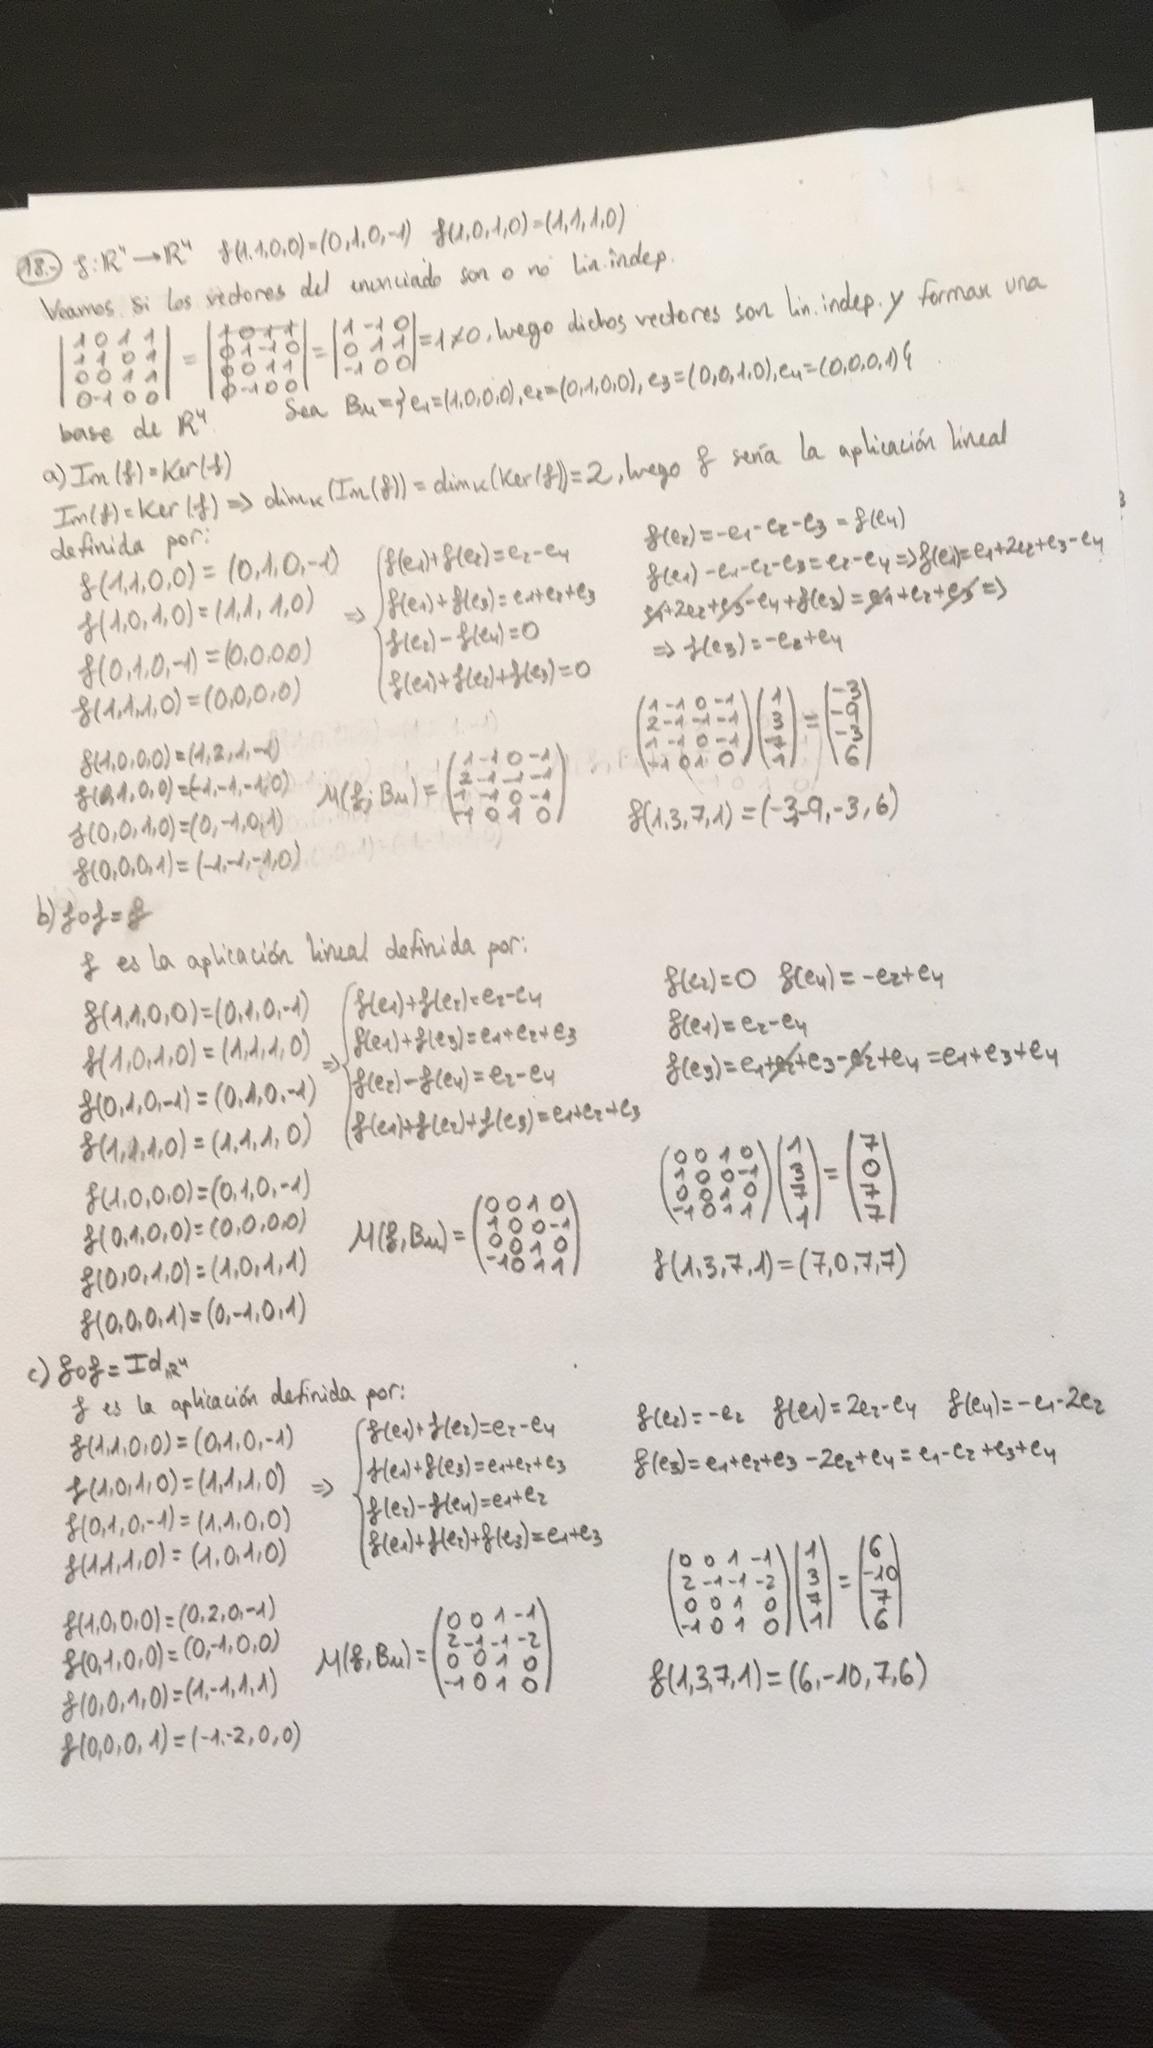 18.- f:R⁴→R⁴ f(1,1,0,0)=(0,1,0,-1) f(1,0,1,0)=(1,1,1,0)
Veamos si los vectores del enunciado son o no lin.indep.
|1 0 1 1| |1 0 1 1| |1 -1 0|
|1 1 0 1| = |0 1 -1 0| = |0 1 1| = 1≠0, luego dichos vectores son lin.indep. y forman una
|0 0 1 1| |0 0 1 1| |-1 0 0|
|0 -1 0 0| |0 -1 0 0|
base de R⁴. Sea Bu={e1=(1,0,0,0),e2=(0,1,0,0),e3=(0,0,1,0),e4=(0,0,0,1)}
a) Im(f)=Ker(f)
Im(f)=Ker(f) => dimK(Im(f))=dimK(Ker(f))=2, luego f sería la aplicación lineal
definida por:
f(1,1,0,0)=(0,1,0,-1)
f(1,0,1,0)=(1,1,1,0)
f(0,1,0,-1)=(0,0,0,0)
f(1,1,1,0)=(0,0,0,0)
=>
f(e1)+f(e2)=e2-e4
f(e1)+f(e3)=e1+e2+e3
f(e2)-f(e4)=0
f(e1)+f(e2)+f(e3)=0
f(e2)=-e1-e2-e3=f(e4)
f(e1)-e1-e2-e3=e2-e4=>f(e1)=e1+2e2+e3-e4
e1+2e2+e3-e4+f(e3)=e1+e2+e3=>
=> f(e3)=-e2+e4
f(1,0,0,0)=(1,2,1,-1)
f(0,1,0,0)=(-1,-1,-1,0)
f(0,0,1,0)=(0,-1,0,1)
f(0,0,0,1)=(-1,-1,-1,0)
M(f;Bu)=
(1 -1 0 -1)
(2 -1 -1 -1)
(1 -1 0 -1)
(-1 0 1 0)
(1 -1 0 -1) (1) (-3)
(2 -1 -1 -1) (3) = (-9)
(1 -1 0 -1) (7) (-3)
(-1 0 1 0) (1) (6)
f(1,3,7,1)=(-3,-9,-3,6)
b) f∘f=f
f es la aplicación lineal definida por:
f(1,1,0,0)=(0,1,0,-1)
f(1,0,1,0)=(1,1,1,0)
f(0,1,0,-1)=(0,1,0,-1)
f(1,1,1,0)=(1,1,1,0)
=>
f(e1)+f(e2)=e2-e4
f(e1)+f(e3)=e1+e2+e3
f(e2)-f(e4)=e2-e4
f(e1)+f(e2)+f(e3)=e1+e2+e3
f(e2)=0 f(e4)=-e2+e4
f(e1)=e2-e4
f(e3)=e1+e2+e3-e2+e4=e1+e3+e4
f(1,0,0,0)=(0,1,0,-1)
f(0,1,0,0)=(0,0,0,0)
f(0,0,1,0)=(1,0,1,1)
f(0,0,0,1)=(0,-1,0,1)
M(f,Bu)=
(0 0 1 0)
(1 0 0 -1)
(0 0 1 0)
(-1 0 1 1)
(0 0 1 0) (1) (7)
(1 0 0 -1) (3) = (0)
(0 0 1 0) (7) (7)
(-1 0 1 1) (1) (7)
f(1,3,7,1)=(7,0,7,7)
c) f∘f=Id R⁴
f es la aplicación definida por:
f(1,1,0,0)=(0,1,0,-1)
f(1,0,1,0)=(1,1,1,0)
f(0,1,0,-1)=(1,1,0,0)
f(1,1,1,0)=(1,0,1,0)
=>
f(e1)+f(e2)=e2-e4
f(e1)+f(e3)=e1+e2+e3
f(e2)-f(e4)=e1+e2
f(e1)+f(e2)+f(e3)=e1+e3
f(e2)=-e2 f(e1)=2e2-e4 f(e4)=-e1-2e2
f(e3)=e1+e2+e3-2e2+e4=e1-e2+e3+e4
f(1,0,0,0)=(0,2,0,-1)
f(0,1,0,0)=(0,-1,0,0)
f(0,0,1,0)=(1,-1,1,1)
f(0,0,0,1)=(-1,-2,0,0)
M(f,Bu)=
(0 0 1 -1)
(2 -1 -1 -2)
(0 0 1 0)
(-1 0 1 0)
(0 0 1 -1) (1) (6)
(2 -1 -1 -2) (3) = (-10)
(0 0 1 0) (7) (7)
(-1 0 1 0) (1) (6)
f(1,3,7,1)=(6,-10,7,6)